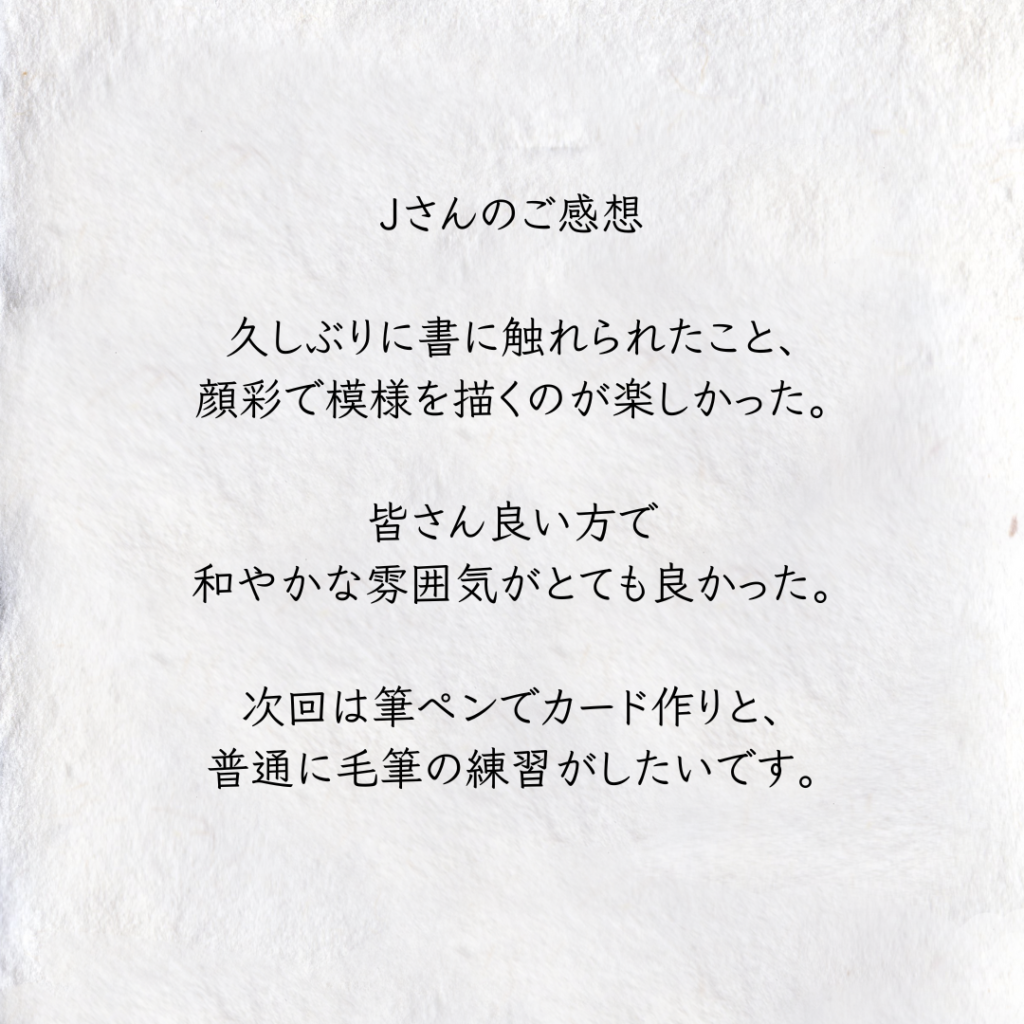 Jさんのご感想
久しぶりに書に触れられたこと、
顔彩で模様を描くのが楽しかった。
皆さん良い方で
和やかな雰囲気がとても良かった。
次回は筆ペンでカード作りと、
普通に毛筆の練習がしたいです。